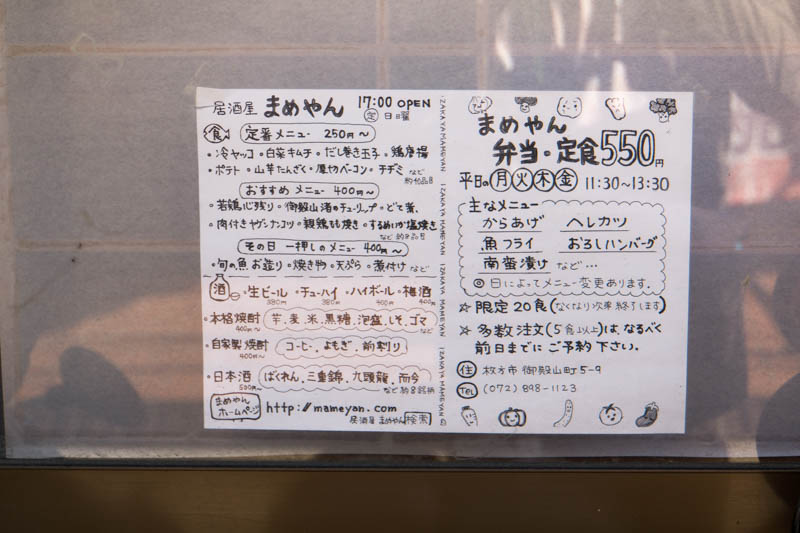 居酒屋 まめやん 17:00 OPEN
定 日曜
食 定番メニュー 250円~
・冷ヤッコ ・白菜キムチ ・だし巻き玉子 ・鶏唐揚
・ポテト ・山芋たんざく ・厚切ベーコン ・チヂミ など
約40品目
おすすめメニュー 400円~
・若鶏心残り ・御殿山渚のチューリップ ・どて煮
・肉付きヤゲンナンコツ ・親鶏もも焼き ・するめいか塩焼き
など約7品目
その日 一押しのメニュー 400円~
・旬の魚お造り ・焼き物 ・天ぷら ・煮付け など
酒 ・生ビール ・チューハイ ・ハイボール ・梅酒
380円 380円 400円 400円
・本格焼酎 芋.麦.米.黒糖.泡盛.しそ.ゴマ
400円~ など
・自家製焼酎 コーヒー.よもぎ.前割り
400円~
・日本酒 ばくれん.三重錦.九頭龍.而今
500円~ など約8銘柄
まめやんホームページ http://mameyan.com
居酒屋 まめやん 検索
IZAKAYA MAMEYAN IZAKAYA MAMEYAN IZAKAYA MAMEYAN IZAKAYA MAMEYAN
まめやん
弁当・定食550円
平日の月火木金 11:30~13:30
主なメニュー
からあげ ヘレカツ
魚フライ おろしハンバーグ
南蛮漬け など…
◎日によってメニュー変更あります。
☆限定20食(なくなり次第終了します)
☆多数注文(5食以上)は、なるべく
前日までにご予約下さい。
住 枚方市 御殿山町5-9
TEL (072)898-1123